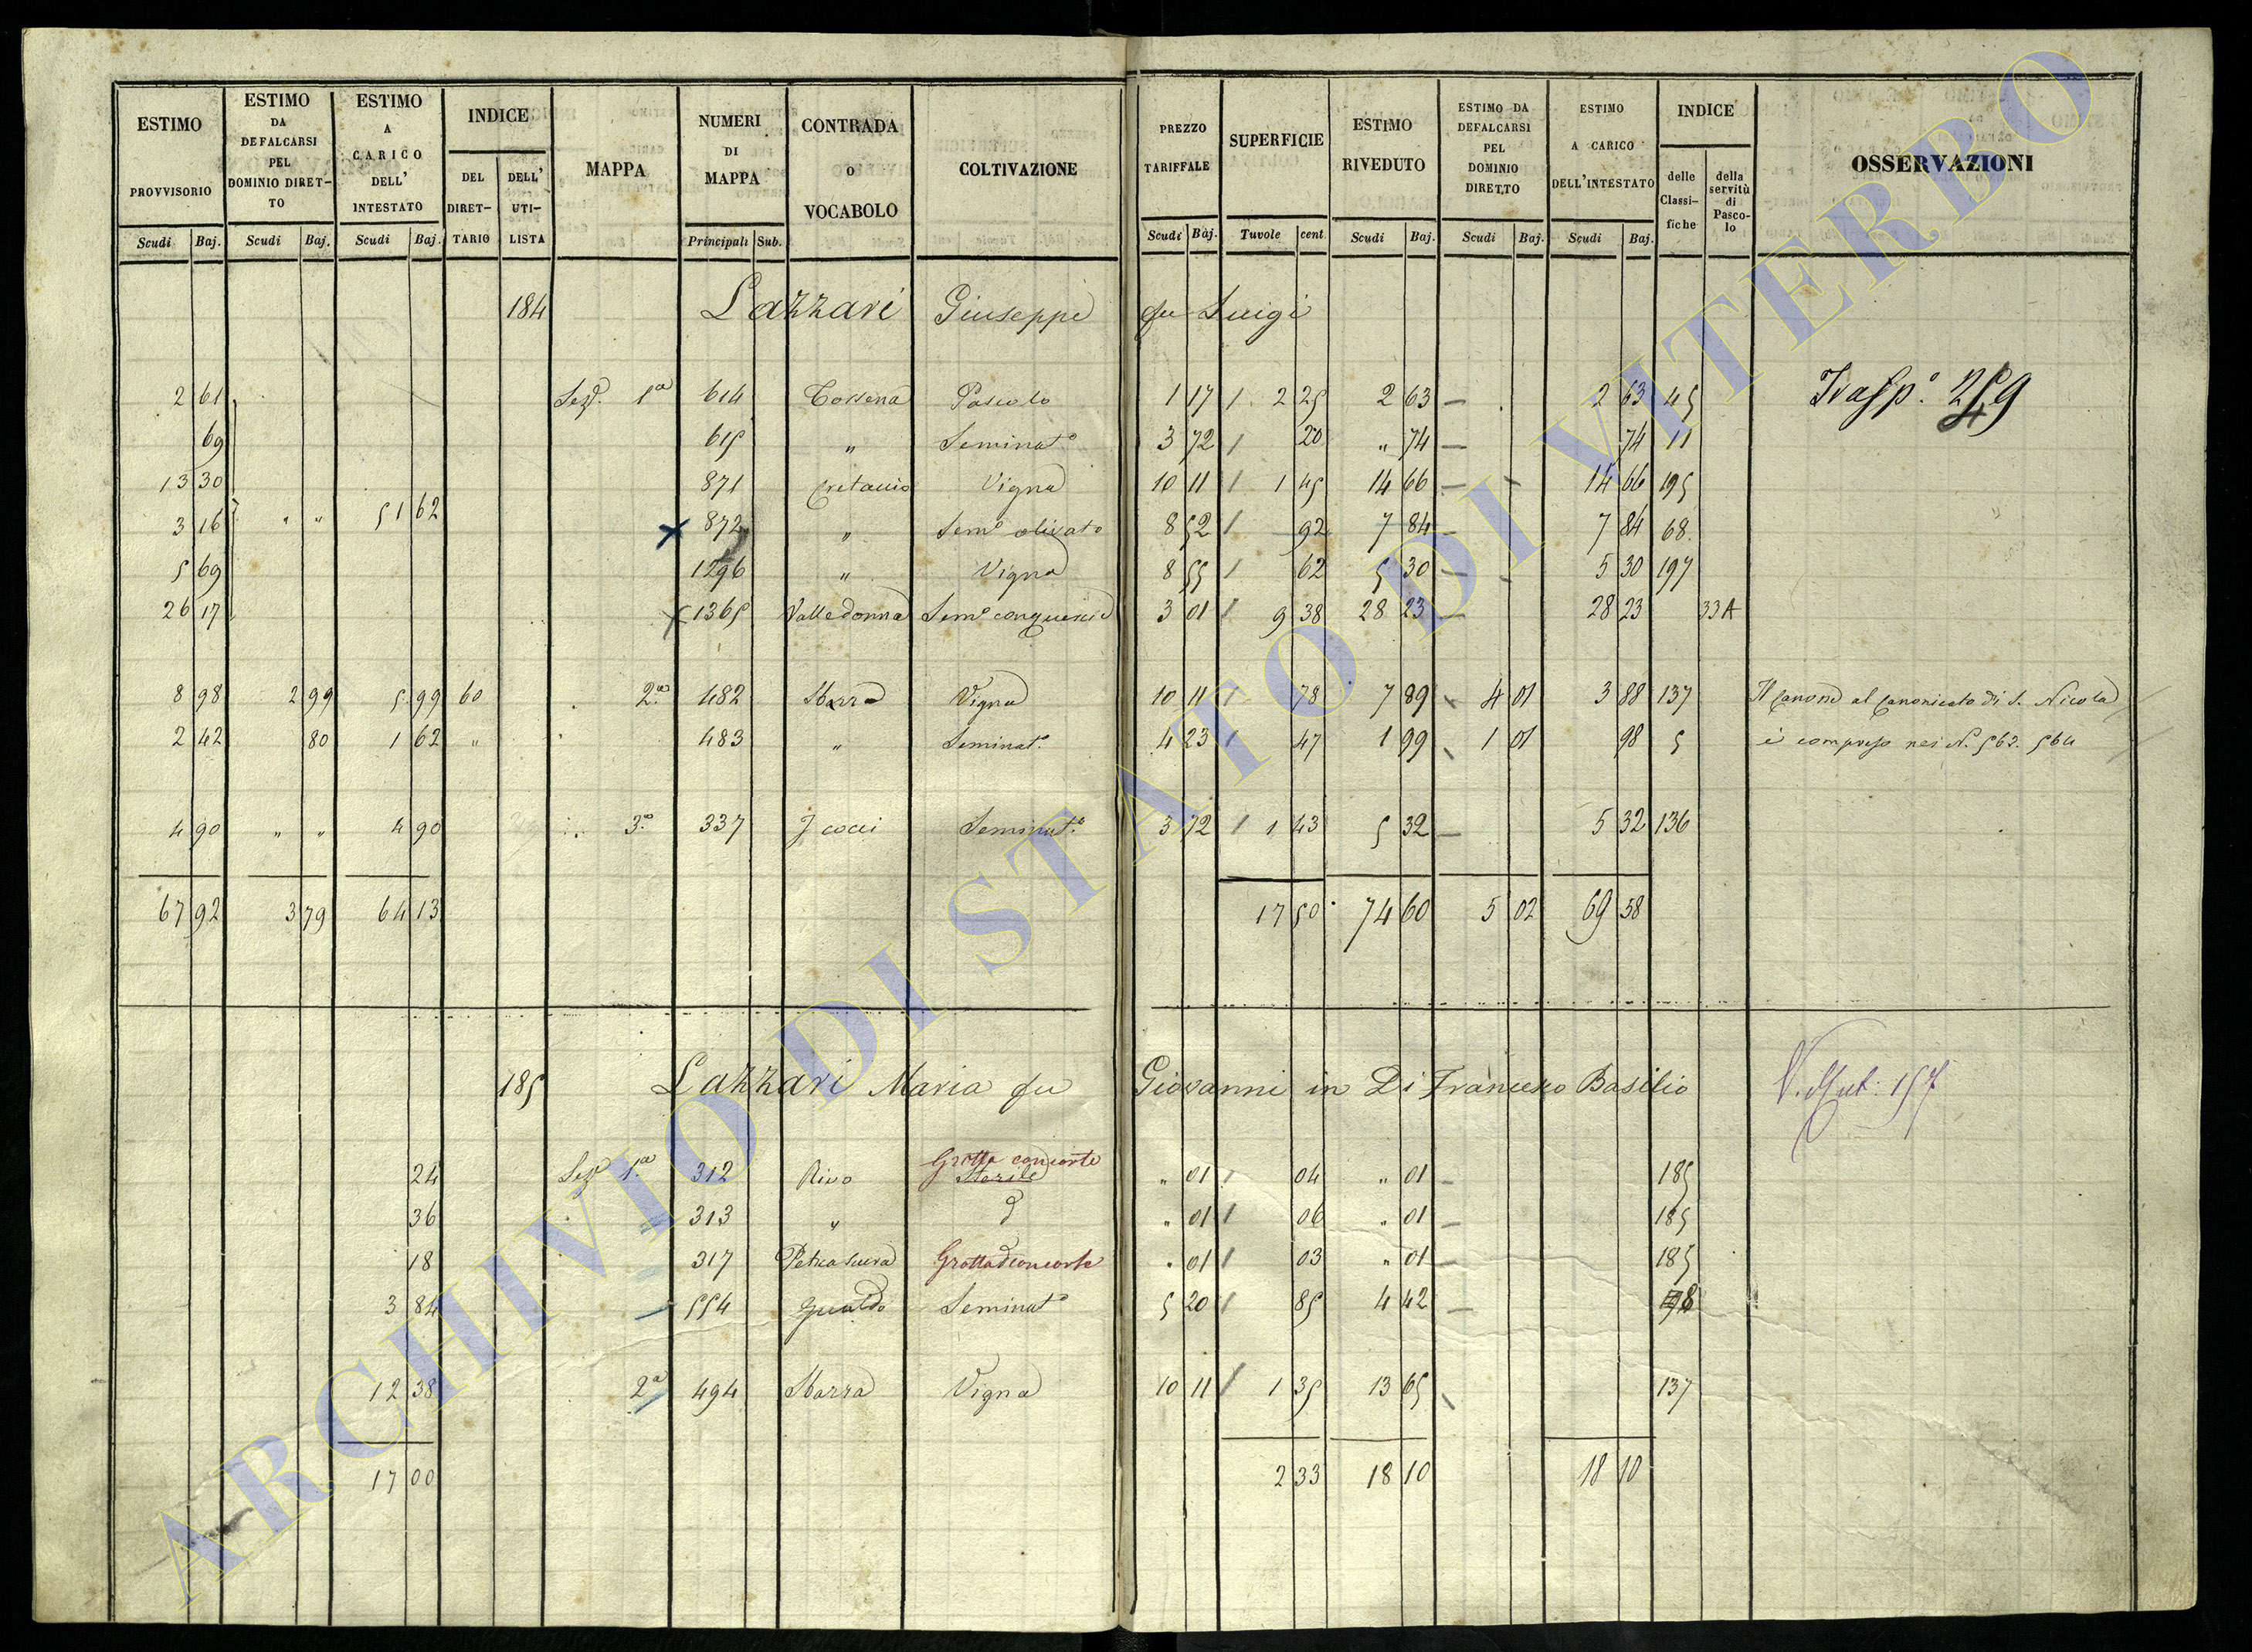 ESTIMO PROVVISORIO | ESTIMO DA DEFALCARSI PEL DOMINIO DIRETTO | ESTIMO A CARICO DELL' INTESTATO | INDICE | MAPPA | NUMERI DI MAPPA | CONTRADA O VOCABOLO | COLTIVAZIONE | PREZZO TARIFFALE | SUPERFICIE | ESTIMO RIVEDUTO | ESTIMO DA DEFALCARSI PEL DOMINIO DIRETTO | ESTIMO A CARICO DELL'INTESTATO | INDICE | OSSERVAZIONI
DEL DIRETTARIO | DELL' UTILISTA | delle Classifiche | della servitù di Pascolo
Scudi | Baj. | Scudi | Baj. | Scudi | Baj. | Principali | Sub. | Scudi | Baj. | Tavole | cent. | Scudi | Baj. | Scudi | Baj. | Scudi | Baj.
184 Lazzari Giuseppe fu Luigi
2 61 Sez. 1a 614 Cossena Pascolo 1 17 / 2 25 2 63 — 2 63 45 Trasp.o 259
69 615 " Seminato 3 72 / 20 " 74 — 74 11
13 30 871 Cretaccio Vigna 10 11 / 1 45 14 66 — 14 66 195
3 16 " " 51 62 x 872 " Semo olivato 8 52 / 92 7 84 — 7 84 68
5 69 1296 " Vigna 8 55 / 62 5 30 — 5 30 197
26 17 x 1365 Valledonna Semo 3 01 / 9 38 28 23 — 28 23 33A
8 98 2 99 5 99 60 2.a 482 Sbarra Vigna 10 11 / 78 7 89 4 01 3 88 137 Il canone al canonicato di S. Nicola
2 42 80 1 62 " 483 " Seminat.o 4 23 / 47 1 99 1 01 98 5 è compreso nei N. 563. 564
4 90 " " 4 90 3.a 337 I cocci Seminat.o 3 72 / 1 43 5 32 — 5 32 136
67 92 3 79 64 13 17 50 74 60 5 02 69 58
185 Lazzari Maria fu Giovanni in Di Francesco Basilio V. Mut: 157
Grotta con corte
24 Sez. 1.a 312 Rivo Sterile " 01 / 04 " 01 — 185
36 313 " " 01 / 06 " 01 — 185
18 317 Petrascura Grotta con corte " 01 / 03 " 01 — 185
3 84 554 Gualdo Seminato 5 20 / 85 4 42 —
12 38 2a 494 Sbarra Vigna 10 11 / 1 35 13 65 137
17 00 2 33 18 10 18 10
ARCHIVIO DI STATO DI VITERBO